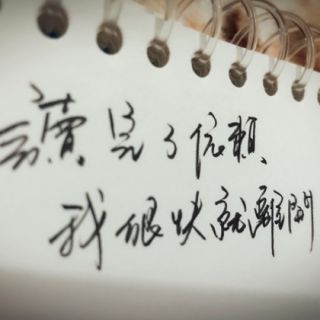 讀完了依賴
我很快就離開